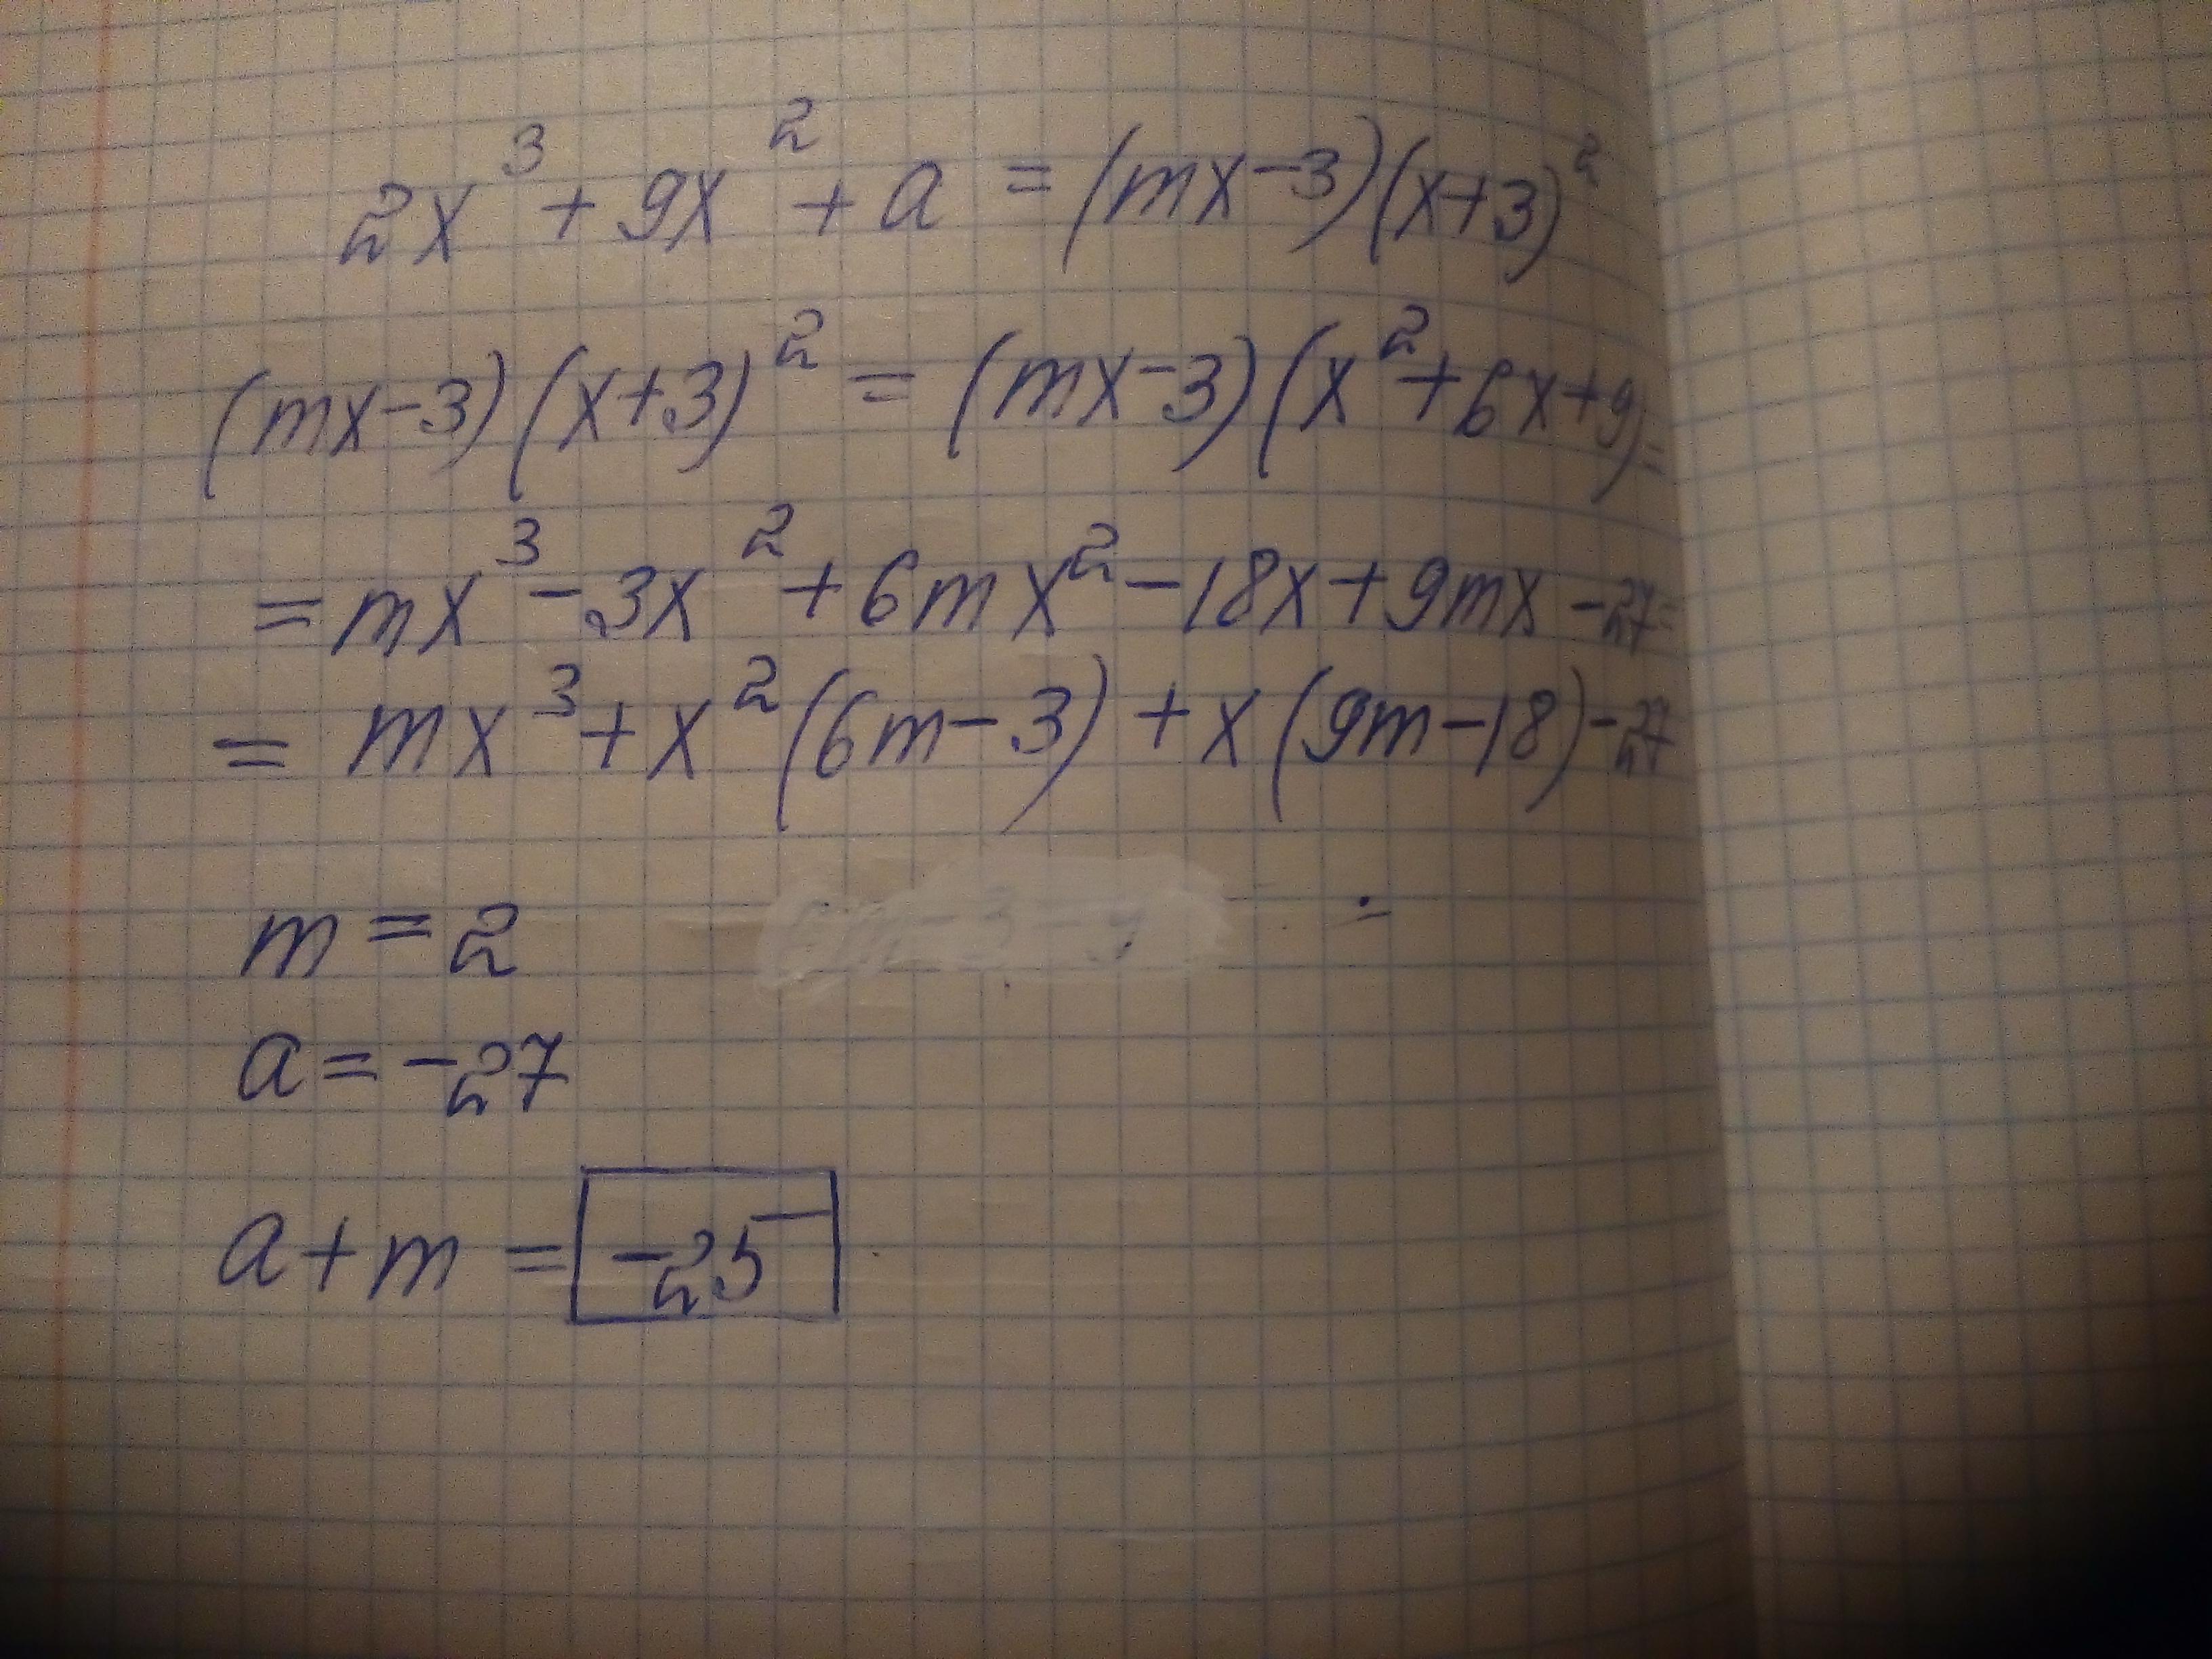 2x³ + 9x² + a = (mx-3)(x+3)²
(mx-3)(x+3)² = (mx-3)(x²+6x+9)=
= mx³ - 3x² + 6mx² - 18x + 9mx - 27 =
= mx³ + x²(6m-3) + x(9m-18) - 27
m = 2
a = -27
a + m = -25